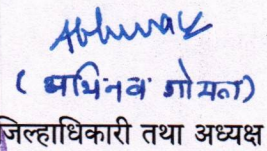 Abhinav
( अभिनव गोयल )
जिल्हाधिकारी तथा अध्यक्ष